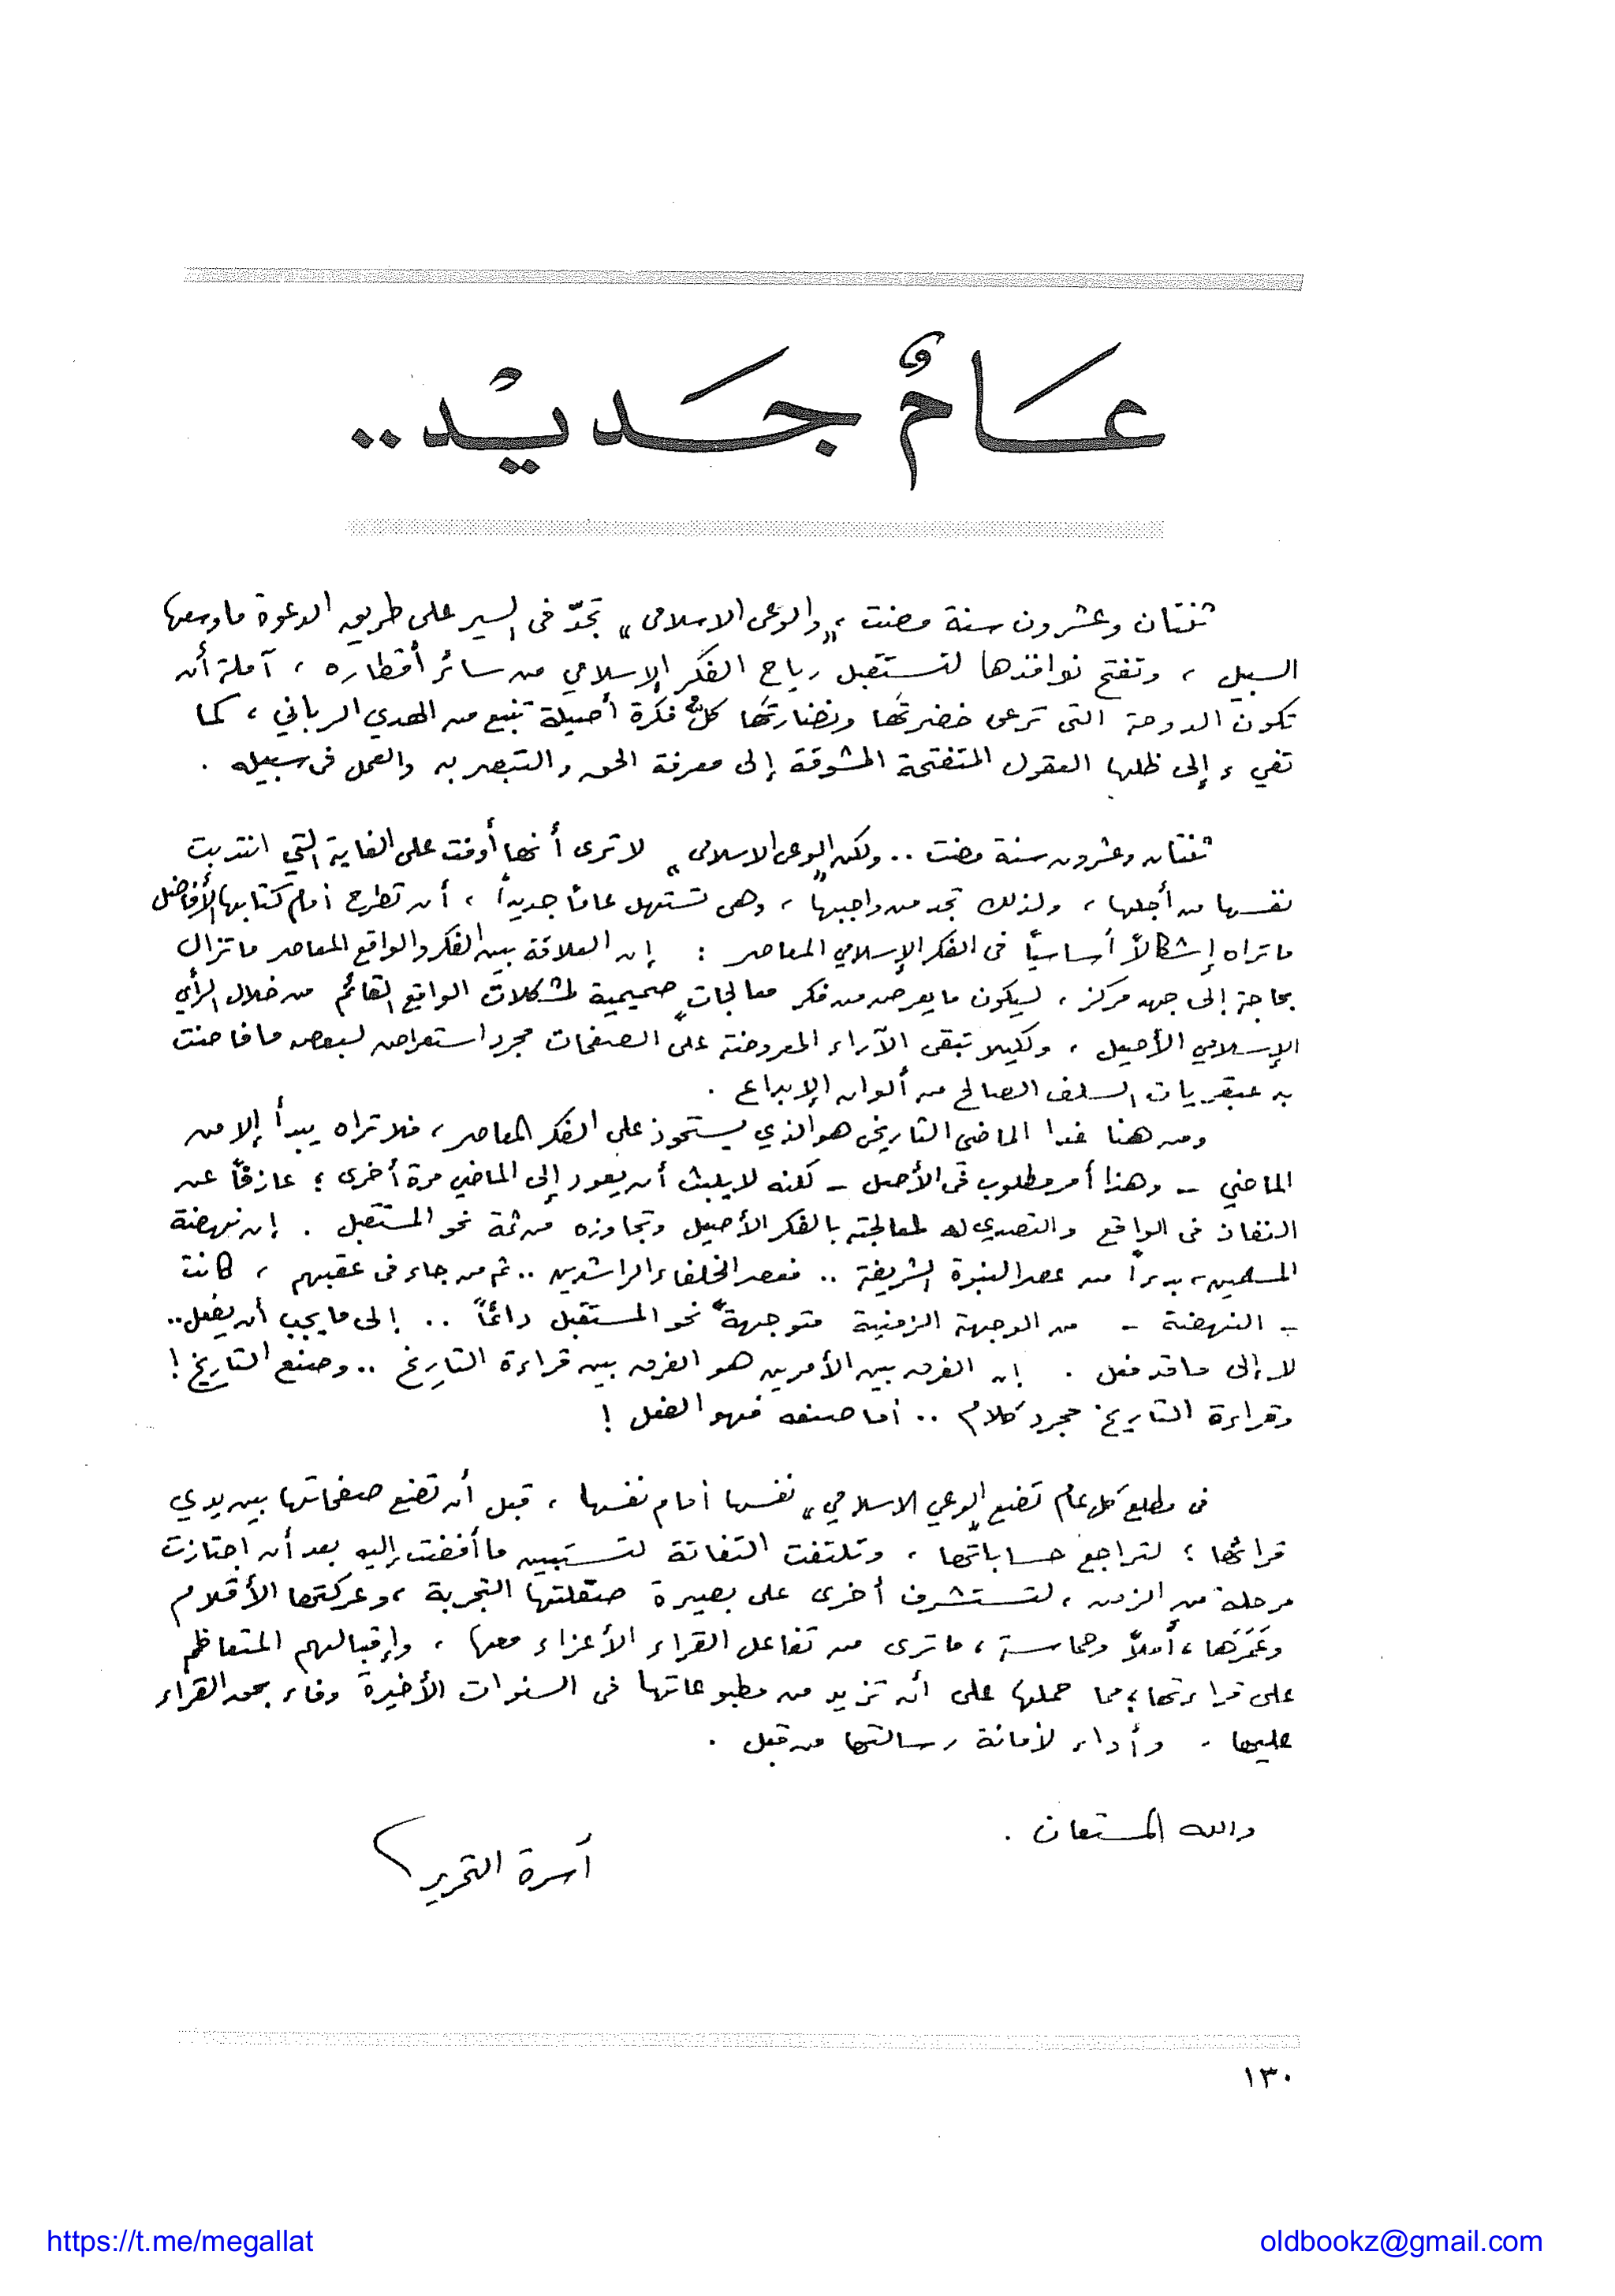 عَامٌ جَديْد..
ثنتان وعشرون سنة مضت ، و"الوعى الاسلامى" تجدّ فى السير على طريق الدعوة ما وسعها
السبيل ، وتفتح نوافذها لتستقبل رياح الفكر الإسلامي من سائر أقطاره ، آملة أن
تكون الدوحة التى ترعى خضرتها ونضارتها كلُّ فكرة أصيلة تنبع من الهدي الرباني ، كما
تفيء إلى ظلها العقول المتفتحة المشوقة إلى معرفة الحق والتبصر به والعمل فى سبيله .
ثنتان وعشرون سنة مضت .. ولكن "الوعى الاسلامى" لا ترى أنها أوفت على الغاية التي انتدبت
نفسها من أجلها ، ولذلك تجد من واجبها ، وهى تستهل عامًا جديدًا ، أن تطرح أمام كتابها الأفاضل
ما تراه إشكالاً أساسيًا فى الفكر الإسلامي المعاصر : إن العلاقة بين الفكر والواقع المعاصر ما تزال
بحاجة إلى جهد مركز ، ليكون ما يعرض من فكر معالجاتٍ صميمية لمشكلات الواقع القائم من خلال الرأي
الإسلامي الأصيل ، ولكيلا تبقى الآراء المعروضة على الصفحات مجرد استعراض لبعض ما فاضت
به عبقريات السلف الصالح من ألوان الإبداع .
ومن هنا غدا الماضى التاريخى هو الذي يستحوذ على الفكر المعاصر ، فلا تراه يبدأ إلا من
الماضي - وهذا أمر مطلوب فى الأصل - لكنه لا يلبث أن يعود إلى الماضي مرة أخرى ؛ عازفًا عن
النفاذ فى الواقع والتصدي له لمعالجته بالفكر الأصيل وتجاوزه من ثمة نحو المستقبل . إن نهضة
المسلمين ، بدءاً من عصر النبوة الشريفة .. فعصر الخلفاء الراشدين .. ثم من جاء فى عقبهم ، كانت
- النهضة - من الوجهة الزمنية متوجهةً نحو المستقبل دائمًا .. إلى ما يجب أن يفعل ..
لا إلى ما قد فعل . إن الفرق بين الأمرين هو الفرق بين قراءة التاريخ .. وصنع التاريخ !
وقراءة التاريخ مجرد كلام .. أما صنعه فهو الفعل !
فى مطلع كل عام تضع "الوعي الاسلامي" نفسها أمام نفسها ، قبل أن تضع صفحاتها بين يدي
قرائها ؛ لتراجع حساباتها ، وتلتفت التفاتة لتستبين ما أفضت إليه بعد أن اجتازت
مرحلة من الزمن ، لتستشرف أخرى على بصيرة صقلتها التجربة ، وعركتها الأقلام
وغَمَرَها ، أملاً وحماسة ، ما ترى من تفاعل القراء الأعزاء معها ، وإقبالهم المتعاظم
على قراءتها ؛ مما حملها على أن تزيد من مطبوعاتها فى السنوات الأخيرة وفاء بحق القراء
عليها ، وأداء لأمانة رسالتها من قبل .
والله المستعان .
أسرة التحرير
١٣٠
https://t.me/megallat
oldbookz@gmail.com